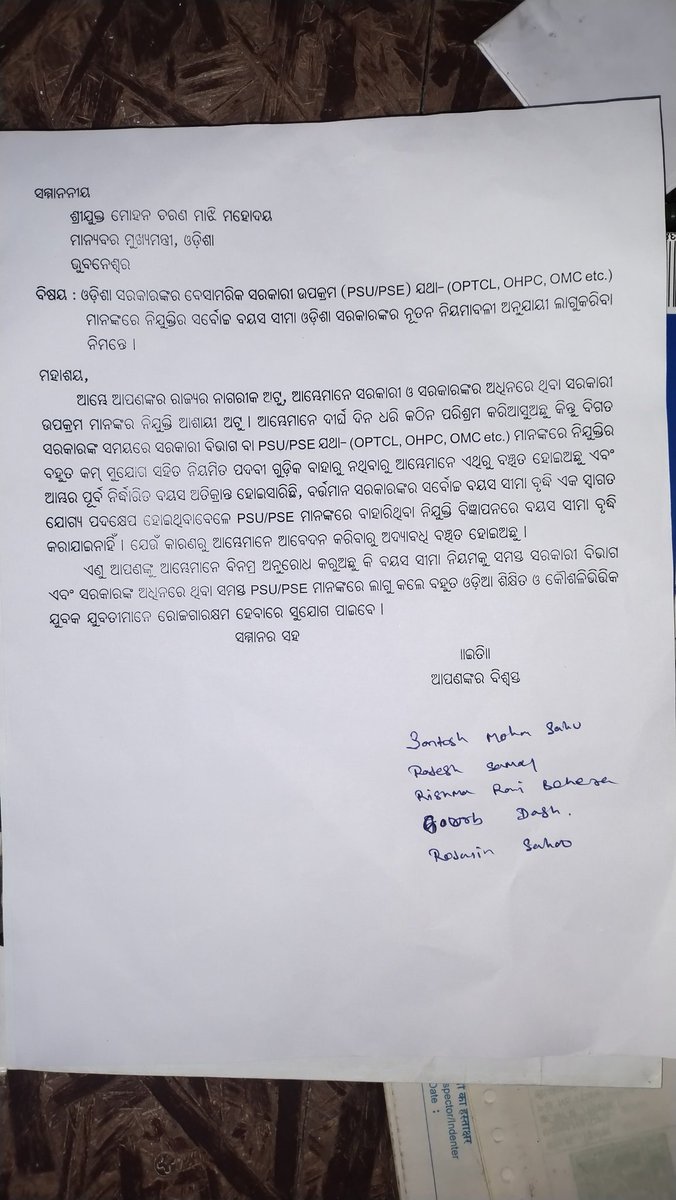 ସମ୍ମାନନୀୟ
ଶ୍ରୀଯୁକ୍ତ ମୋହନ ଚରଣ ମାଝି ମହୋଦୟ
ମାନ୍ୟବର ମୁଖ୍ୟମନ୍ତ୍ରୀ, ଓଡ଼ିଶା
ଭୁବନେଶ୍ୱର
ବିଷୟ : ଓଡ଼ିଶା ସରକାରଙ୍କର ବେସାମରିକ ସରକାରୀ ଉପକ୍ରମ (PSU/PSE) ଯଥା– (OPTCL, OHPC, OMC etc.)
ମାନଙ୍କରେ ନିଯୁକ୍ତିର ସର୍ବୋଚ୍ଚ ବୟସ ସୀମା ଓଡ଼ିଶା ସରକାରଙ୍କର ନୂତନ ନିୟମାବଳୀ ଅନୁଯାୟୀ ଲାଗୁକରିବା
ନିମନ୍ତେ ।
ମହାଶୟ,
ଆମ୍ଭେ ଆପଣଙ୍କର ରାଜ୍ୟର ନାଗରୀକ ଅଟୁ, ଆମ୍ଭେମାନେ ସରକାରୀ ଓ ସରକାରଙ୍କର ଅଧିନରେ ଥିବା ସରକାରୀ
ଉପକ୍ରମ ମାନଙ୍କର ନିଯୁକ୍ତି ଆଶାୟୀ ଅଟୁ । ଆମ୍ଭେମାନେ ଦୀର୍ଘ ଦିନ ଧରି କଠିନ ପରିଶ୍ରମ କରିଆସୁଅଛୁ କିନ୍ତୁ ବିଗତ
ସରକାରଙ୍କ ସମୟରେ ସରକାରୀ ବିଭାଗ ବା PSU/PSE ଯଥା– (OPTCL, OHPC, OMC etc.) ମାନଙ୍କରେ ନିଯୁକ୍ତିର
ବହୁତ କମ୍ ସୁଯୋଗ ସହିତ ନିୟମିତ ପଦବୀ ଗୁଡ଼ିକ ବାହାରୁ ନଥିବାରୁ ଆମ୍ଭେମାନେ ଏଥିରୁ ବଞ୍ଚିତ ହୋଇଅଛୁ ଏବଂ
ଆମ୍ଭର ପୂର୍ବ ନିର୍ଦ୍ଧାରିତ ବୟସ ଅତିକ୍ରାନ୍ତ ହୋଇସାରିଛି, ବର୍ତ୍ତମାନ ସରକାରଙ୍କର ସର୍ବୋଚ୍ଚ ବୟସ ସୀମା ବୃଦ୍ଧି ଏକ ସ୍ୱାଗତ
ଯୋଗ୍ୟ ପଦକ୍ଷେପ ହୋଇଥିବାବେଳେ PSU/PSE ମାନଙ୍କରେ ବାହାରିଥିବା ନିଯୁକ୍ତି ବିଜ୍ଞାପନରେ ବୟସ ସୀମା ବୃଦ୍ଧି
କରାଯାଇନାହିଁ । ଯେଉଁ କାରଣରୁ ଆମ୍ଭେମାନେ ଆବେଦନ କରିବାରୁ ଅଦ୍ୟାବଧି ବଞ୍ଚିତ ହୋଇଅଛୁ ।
ଏଣୁ ଆପଣଙ୍କୁ ଆମ୍ଭେମାନେ ବିନମ୍ର ଅନୁରୋଧ କରୁଅଛୁ କି ବୟସ ସୀମା ନିୟମକୁ ସମସ୍ତ ସରକାରୀ ବିଭାଗ
ଏବଂ ସରକାରଙ୍କ ଅଧିନରେ ଥିବା ସମସ୍ତ PSU/PSE ମାନଙ୍କରେ ଲାଗୁ କଲେ ବହୁତ ଓଡ଼ିଆ ଶିକ୍ଷିତ ଓ କୌଶଳଭିତ୍ତିକ
ଯୁବକ ଯୁବତୀମାନେ ରୋଜଗାରକ୍ଷମ ହେବାରେ ସୁଯୋଗ ପାଇବେ ।
ସମ୍ମାନର ସହ
॥ଇତି॥
ଆପଣଙ୍କର ବିଶ୍ୱସ୍ତ
Santosh Mohan Sahu
Rajesh Samal
Rishma Rani Behera
Dash.
Rosasin Sahoo
का हस्ताक्षर
spector/Indenter
Date :